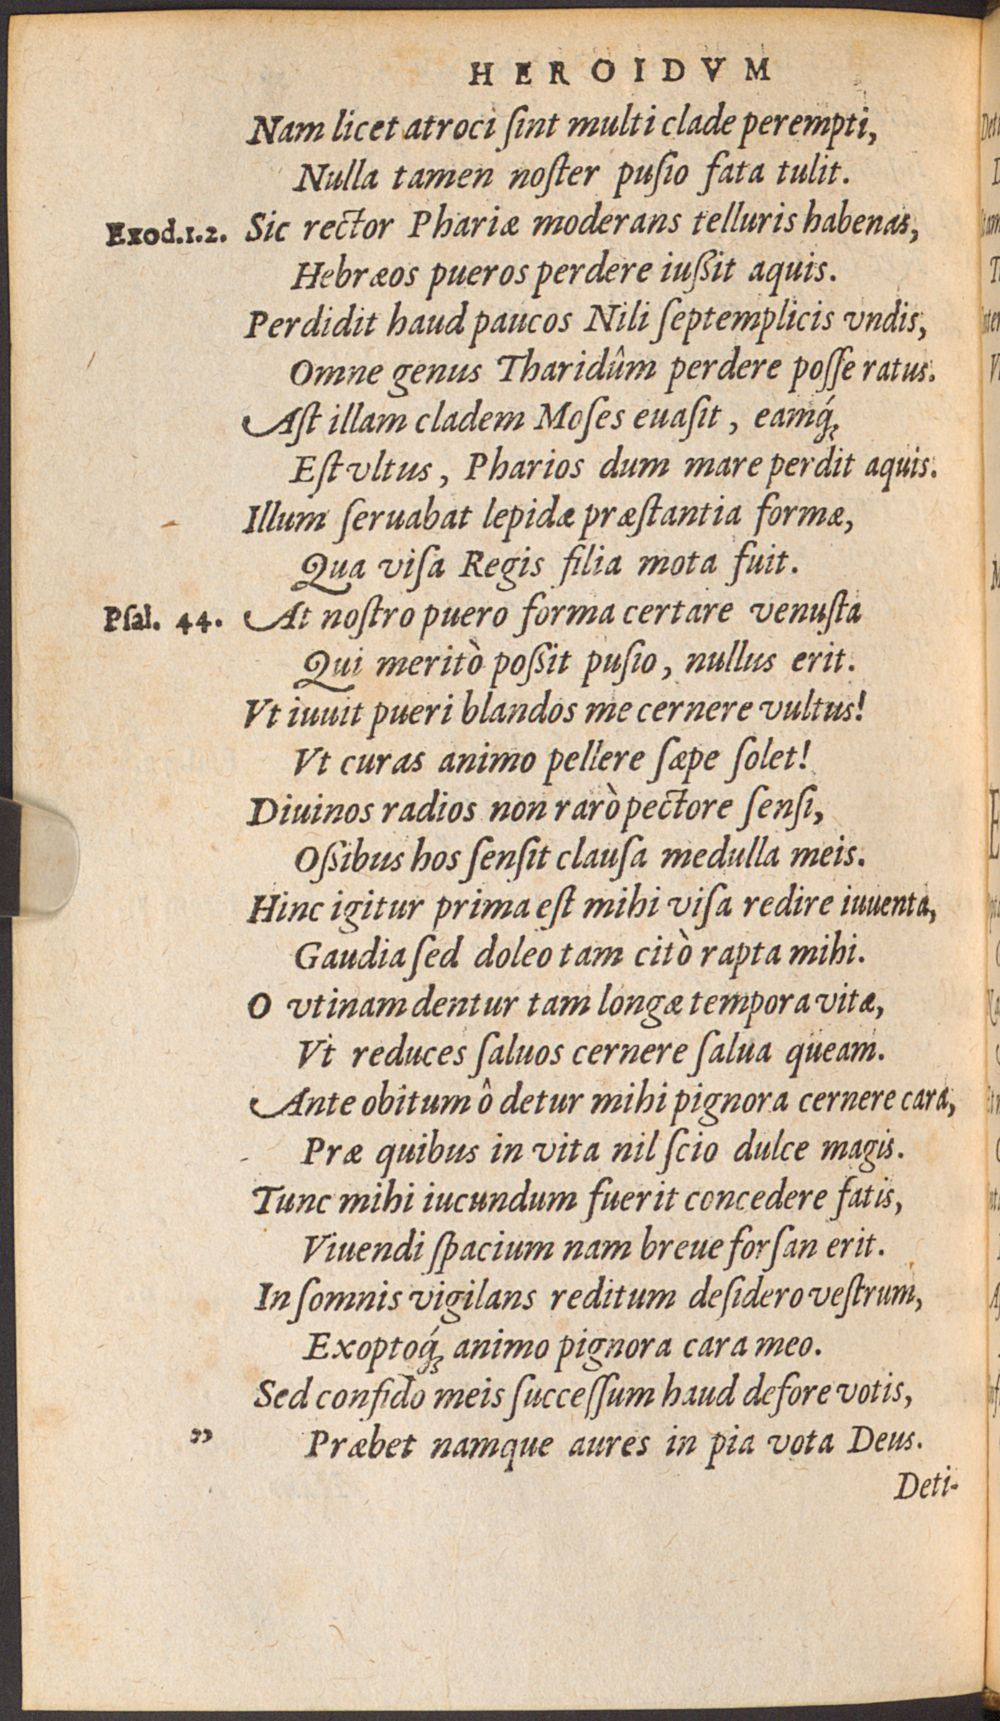 HEROIDVM
Nam licet atroci ſint multi clade perempti,
Nulla tamen noſter puſio fata tulit.
Exod.1.2. Sic rector Phariæ moderans telluris habenas,
Hebræos pueros perdere iuſsit aquis.
Perdidit haud paucos Nili ſeptemplicis vndis,
Omne genus Tharidûm perdere poſſe ratus.
Aſt illam cladem Moſes euaſit, eamq́;
Eſt vltus, Pharios dum mare perdit aquis.
Illum ſeruabat lepidæ præſtantia formæ,
Qua viſa Regis filia mota fuit.
Pſal. 44. At noſtro puero forma certare venuſta
Qui meritò poſsit puſio, nullus erit.
Vt iuuit pueri blandos me cernere vultus!
Vt curas animo pellere ſæpe ſolet!
Diuinos radios non rarò pectore ſenſi,
Oſsibus hos ſenſit clauſa medulla meis.
Hinc igitur prima eſt mihi viſa redire iuuenta,
Gaudia ſed doleo tam citò rapta mihi.
O vtinam dentur tam longæ tempora vitæ,
Vt reduces ſaluos cernere ſalua queam.
Ante obitum ô detur mihi pignora cernere cara,
Præ quibus in vita nil ſcio dulce magis.
Tunc mihi iucundum fuerit concedere fatis,
Viuendi ſpacium nam breue forſan erit.
In ſomnis vigilans reditum deſidero veſtrum,
Exoptoq́; animo pignora cara meo.
Sed confido meis ſucceſſum haud defore votis,
„ Præbet namque aures in pia vota Deus.
Deti-